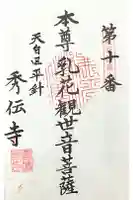 第十番
本尊乳花觀世音菩薩
天白区平針
秀伝寺